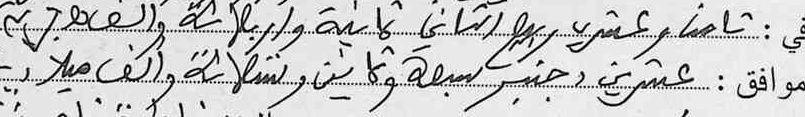 في : ثامن وعشرين ربيع الثاني ثمانية واربعمائة والف هجرية
موافق : عشرين دجنبر سبعة وثمانين وتسعمائة والف ميلادية